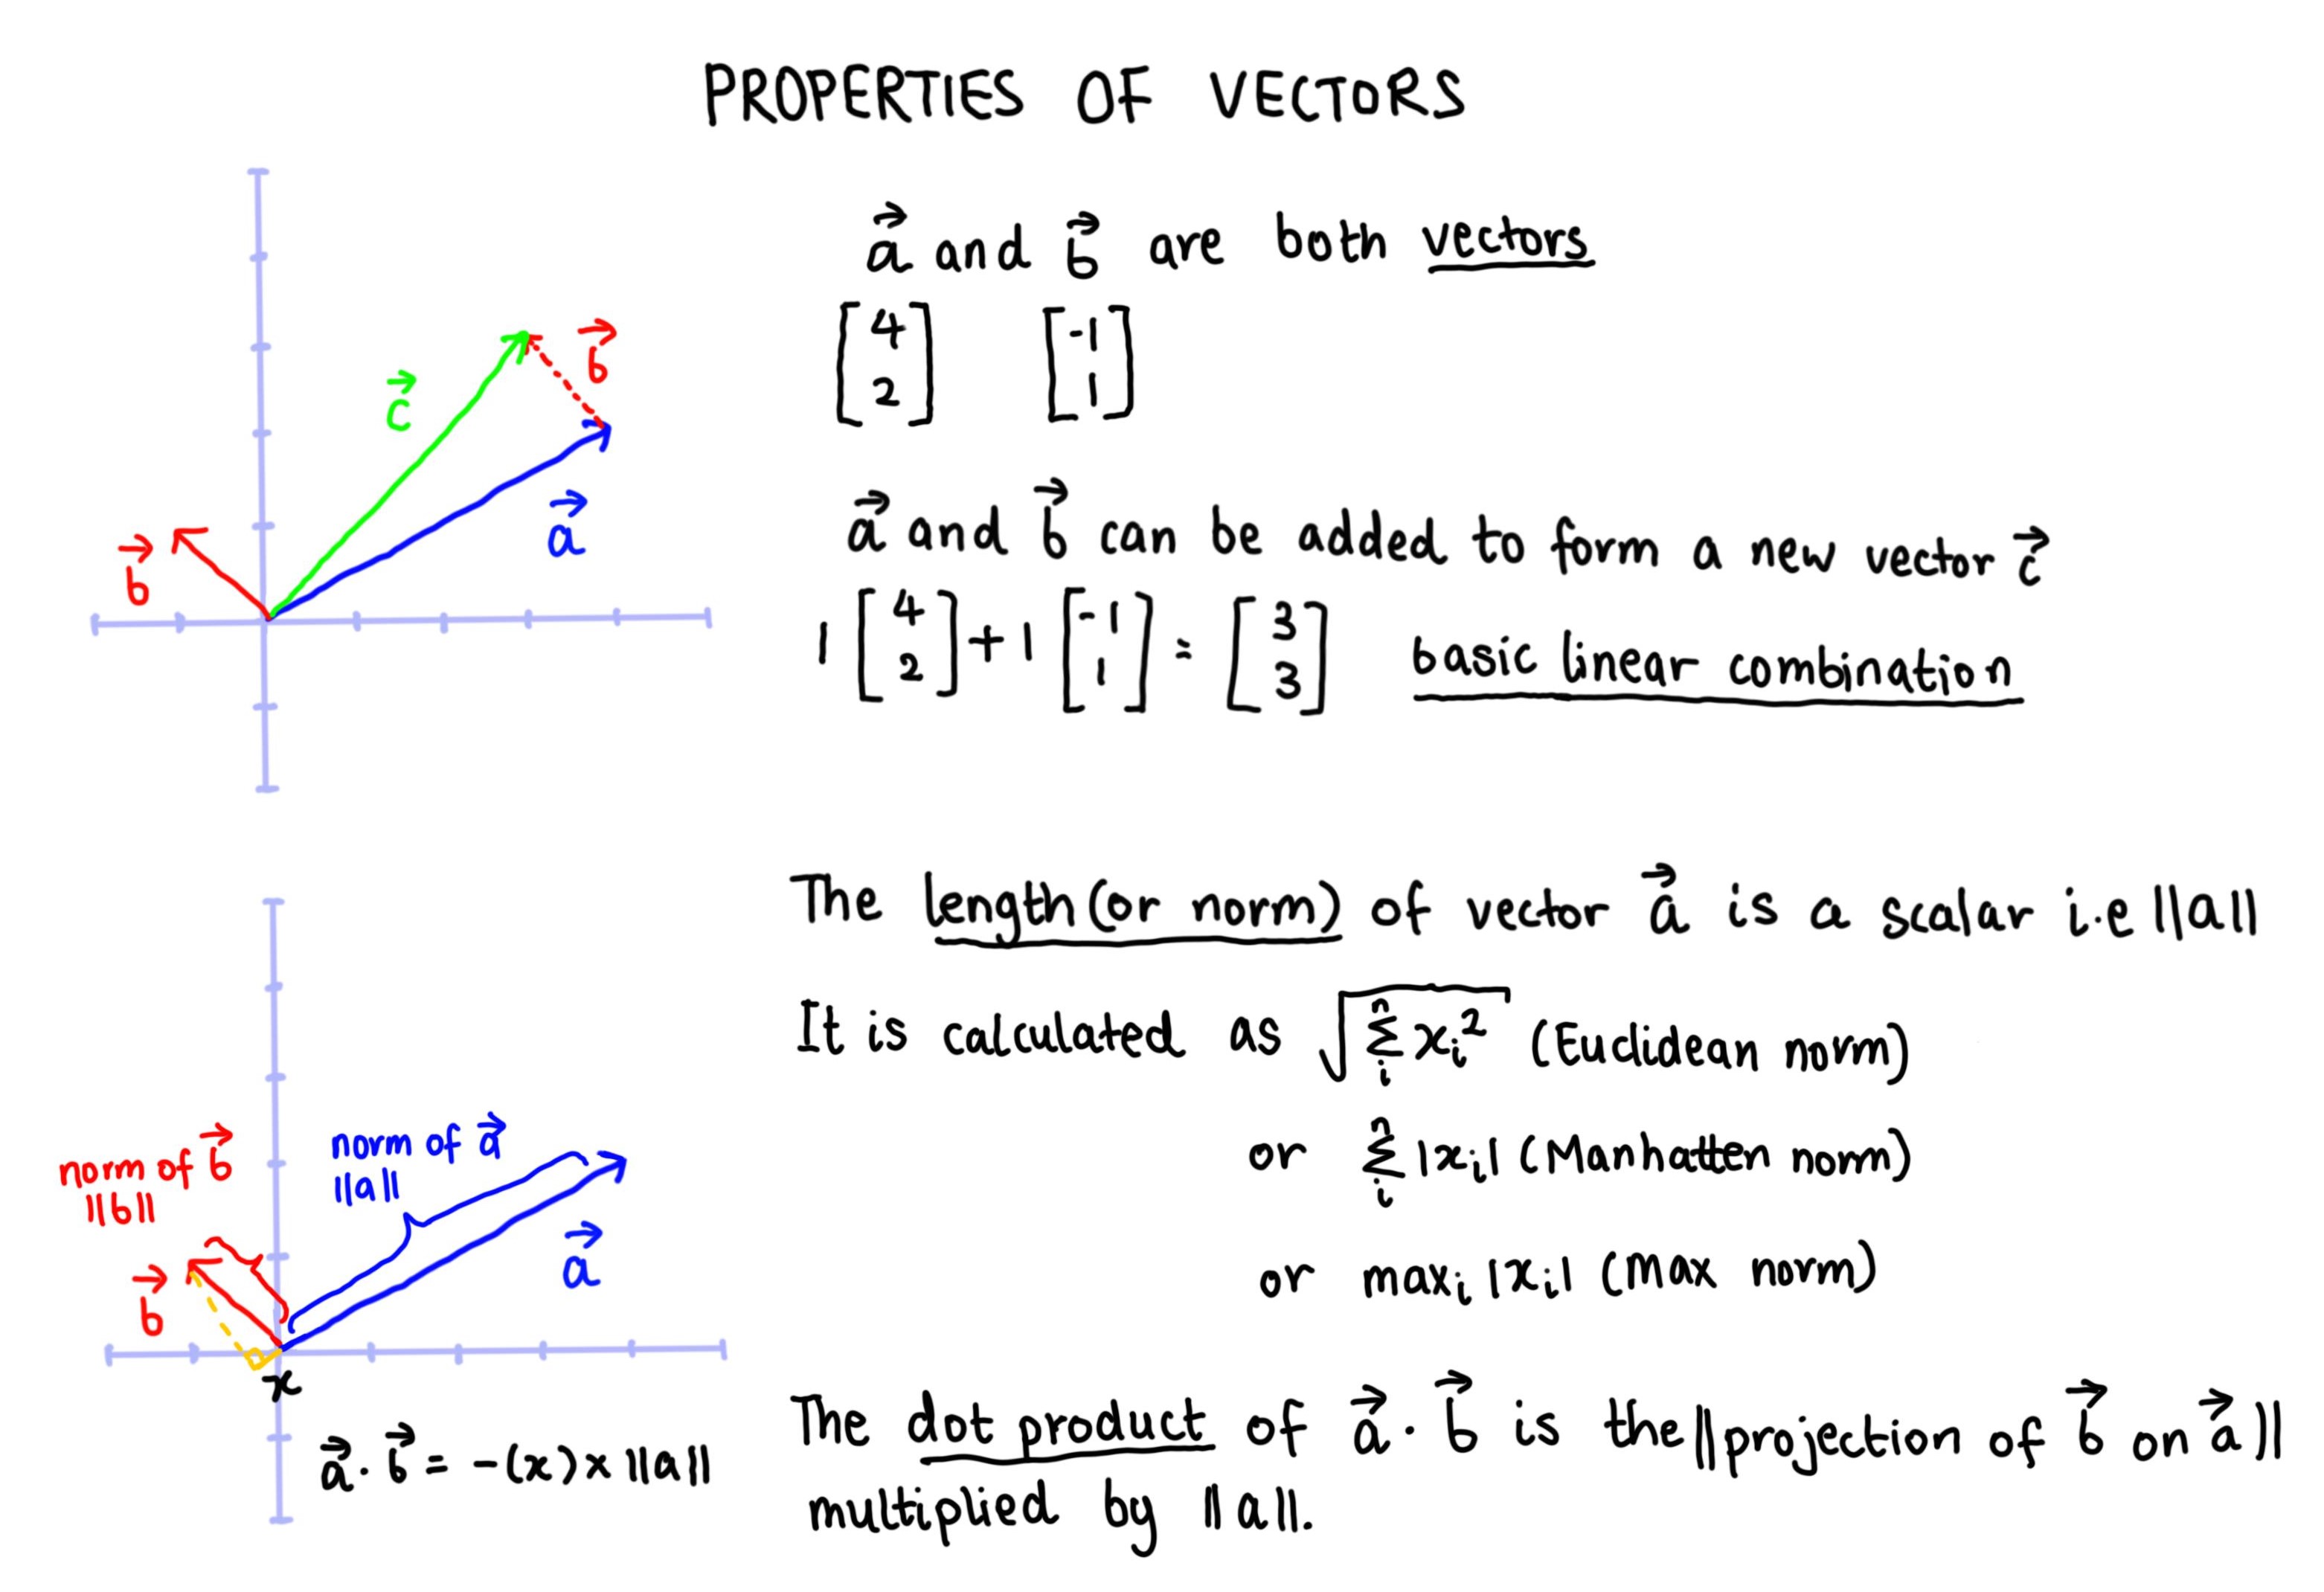 PROPERTIES OF VECTORS
a⃗ and b⃗ are both vectors
[4 2] [-1 1]
c⃗
b⃗
a⃗
b⃗
a⃗ and b⃗ can be added to form a new vector c⃗
1 [4 2] + 1 [-1 1] = [3 3] basic linear combination
The length (or norm) of vector a⃗ is a scalar i.e ||a||
It is calculated as √(Σᵢⁿ xᵢ²) (Euclidean norm)
or Σᵢⁿ |xᵢ| (Manhatten norm)
or maxᵢ |xᵢ| (max norm)
norm of b⃗
||b||
norm of a⃗
||a||
a⃗
b⃗
x
a⃗ · b⃗ = -(x) × ||a||
The dot product of a⃗ · b⃗ is the ||projection of b⃗ on a⃗||
multiplied by ||a||.